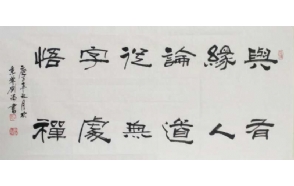 與有
緣人
論道
從無
字處
悟禪